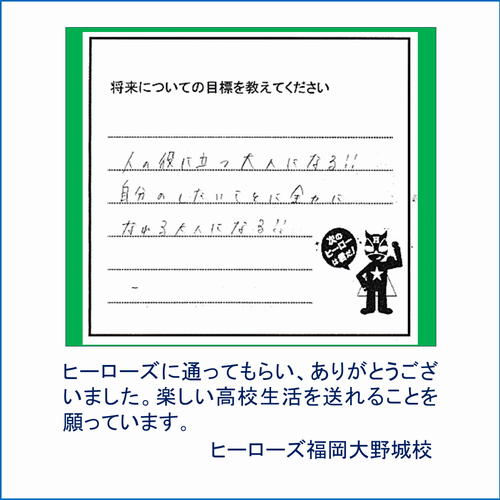 将来についての目標を教えてください
人の役に立つ大人になる!!
自分のしたいことに全力に
なれる大人になる!!
次の
ヒーロー
は君だ!
ヒーローズに通ってもらい、ありがとうござ
いました。楽しい高校生活を送れることを
願っています。
ヒーローズ福岡大野城校